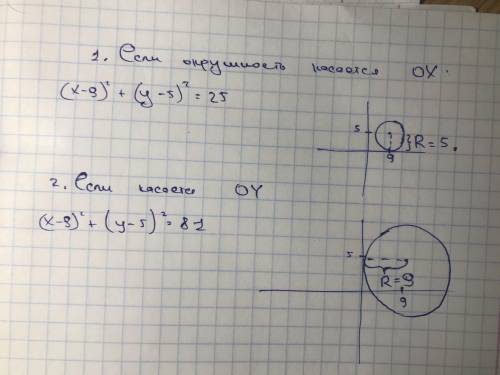 1. Если окружность касается OX.
(x-9)² + (y-5)² = 25
5
9
}R=5.
2. Если касается OY
(x-9)² + (y-5)² = 81
5
R=9
9